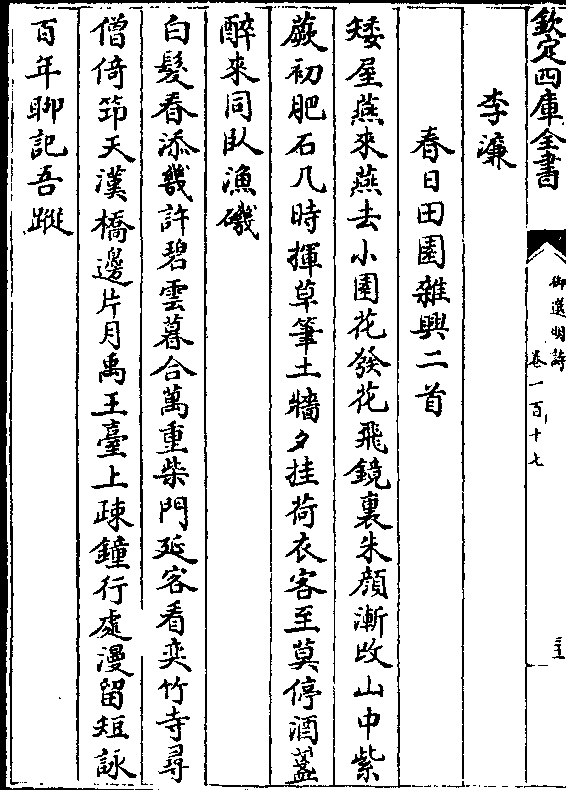 欽定四庫全書
御選明詩
卷一百十七
李濂
春日田園雜興二首
矮屋燕來燕去小園花發花飛鏡裏朱顔漸改山中紫
蕨初肥石几時揮草筆土牆夕挂荷衣客至莫停酒盞
醉來同臥漁磯
白髮春添幾許碧雲暮合萬重柴門延客看奕竹寺尋
僧倚筇天漢橋邊片月禹王臺上疎鐘行處漫留短詠
百年聊記吾蹤